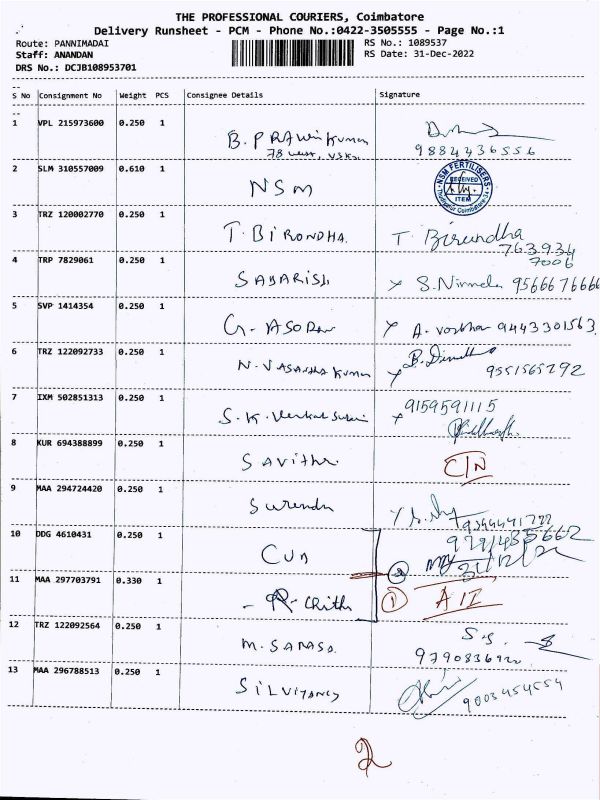 THE PROFESSIONAL COURIERS, Coimbatore
Delivery Runsheet - PCM - Phone No.:0422-3505555 - Page No.:1
Route: PANNIMADAI
RS No.: 1089537
Staff: ANANDAN
RS Date: 31-Dec-2022
DRS No.: DCJB108953701
S No Consignment No Weight PCS Consignee Details Signature
1 VPL 215973600 0.250 1 B. PRAWIN KUMAR
9884436556
2 SLM 310557009 0.610 1 NSM
NSM FERTILISERS RECEIVED ITEM Coimbatore
3 TRZ 120002770 0.250 1 T. BIRONDHA. T. Birundha
763934
7006
4 TRP 7829061 0.250 1 SABARISH S. Nirmala 9566676666
5 SVP 1414354 0.250 1 G. 9443301563
6 TRZ 122092733 0.250 1 N. VASANTHA KUMAR
9551565292
7 IXM 502851313 0.250 1 S.K. 9159591115
8 KUR 694388899 0.250 1 SAVITHRI C/N
9 MAA 294724420 0.250 1 Surendar
10 DDG 4610431 0.250 1 CUB
2 31/12/22
11 MAA 297703791 0.330 1 1
12 TRZ 122092564 0.250 1 M. SARASA. S.S.
13 MAA 296788513 0.250 1
9003454554
2